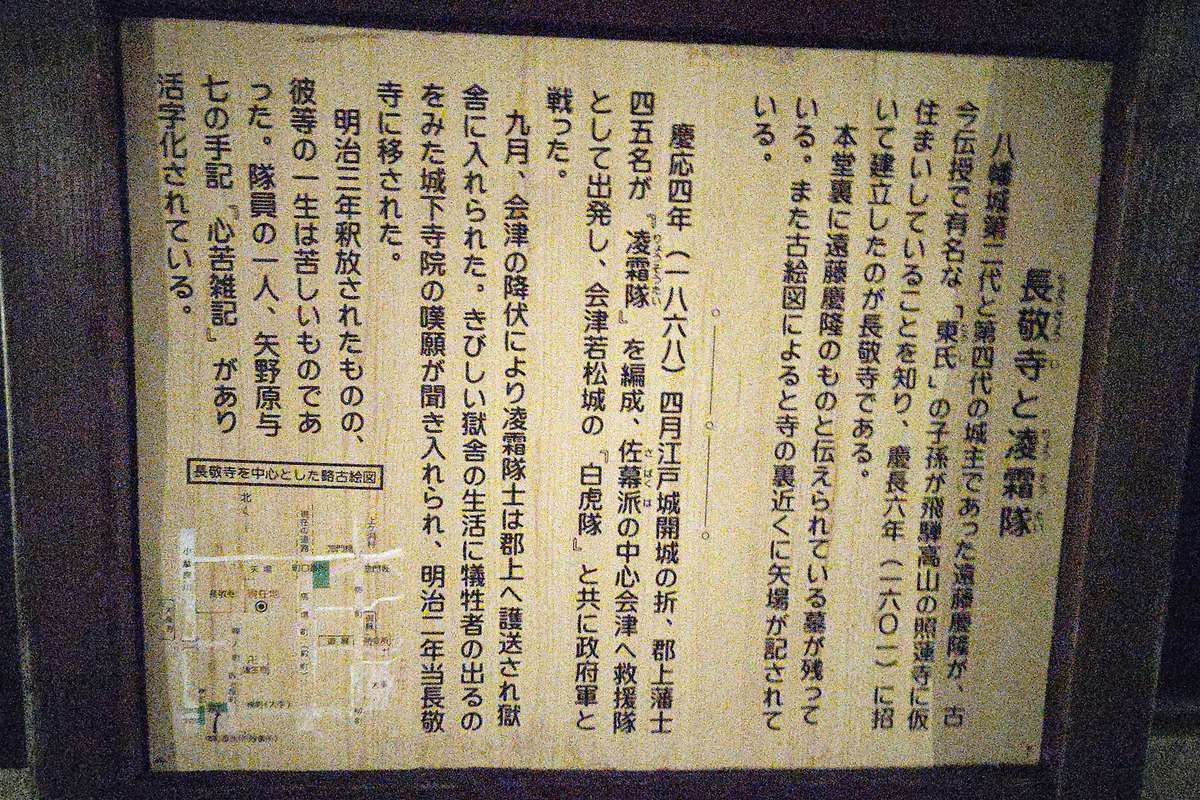 長敬寺と凌霜隊
八幡城第二代と第四代の城主であった遠藤慶隆が、古
今伝授で有名な「東氏」の子孫が飛騨高山の照蓮寺に仮
住まいしていることを知り、慶長六年（一六〇一）に招
いて建立したのが長敬寺である。
本堂裏に遠藤慶隆のものと伝えられている墓が残って
いる。また古絵図によると寺の裏近くに矢場が記されて
いる。
慶応四年（一八六八）四月江戸城開城の折、郡上藩士
四五名が『凌霜隊』を編成、佐幕派の中心会津へ救援隊
として出発し、会津若松城の『白虎隊』と共に政府軍と
戦った。
九月、会津の降伏により凌霜隊士は郡上へ護送され獄
舎に入れられた。きびしい獄舎の生活に犠牲者の出るの
をみた城下寺院の嘆願が聞き入れられ、明治二年当長敬
寺に移された。
明治三年釈放されたものの、
彼等の一生は苦しいものであ
った。隊員の一人、矢野原与
七の手記『心苦雑記』があり
活字化されている。
長敬寺を中心とした略古絵図
北
現在の道路
小駄良川
矢場
長敬寺
現在地